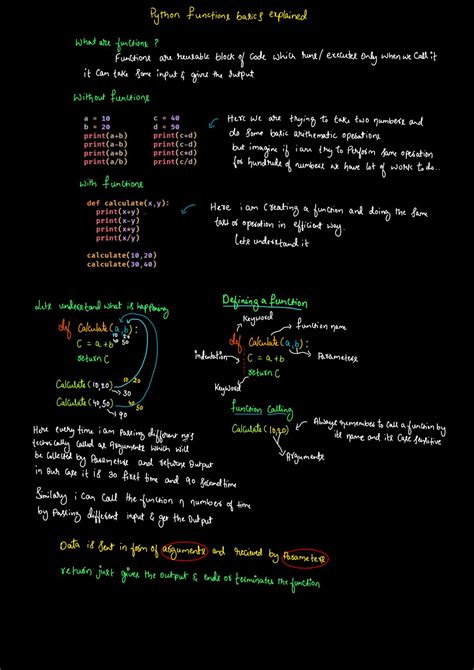 Python functions basics explained
What are functions ?
Functions are reusable block of Code which runs/ executes Only when we Call it
it Can take Some input & gives the Output
Without functions
a = 10
b = 20
print(a+b)
print(a-b)
print(a*b)
print(a/b)
c = 40
d = 50
print(c+d)
print(c-d)
print(c*d)
print(c/d)
Here we are trying to take two numbers and
do some basic arithematic operations
but imagine if i am try to Perform same operation
for hundreds of numbers we have lot of work to do..
With functions
def calculate(x,y):
print(x+y)
print(x-y)
print(x*y)
print(x/y)
calculate(10,20)
calculate(30,40)
Here i am Creating a function and doing the same
task or operation in efficient way.
Lets understand it
Lets understand what is happening
def Calculate(a,b):
10 20
40 50
C = a+b
return C
Calculate(10,20)
10 20
30
Calculate(40,50)
40 50
90
Defining a function
Keyword
function name
def Calculate(a,b):
Parameters
indentation
C = a+b
return C
Keyword
function Calling
Calculate(10,20)
Arguments
Always remember to call a function by
its name and its Case sensitive
Here every time i am Passing different no's
technically Called as Arguments which will
be Collected by Parameters and returns Output
in Our Case it is 30 first time and 90 Second time
Similarly i Can Call the function n number of time
by Passing different input & get the Output
Data is Sent in form of arguments and recieved by Parameters
return just gives the output & ends or terminates the function